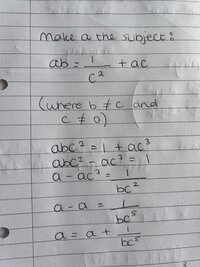 Make a the subject:
ab = 1/c² + ac
(where b ≠ c and
c ≠ 0)
abc² = 1 + ac³
abc² - ac³ = 1
a - ac³ = 1/bc²
a - a = 1/bc⁵
a = a + 1/bc⁵